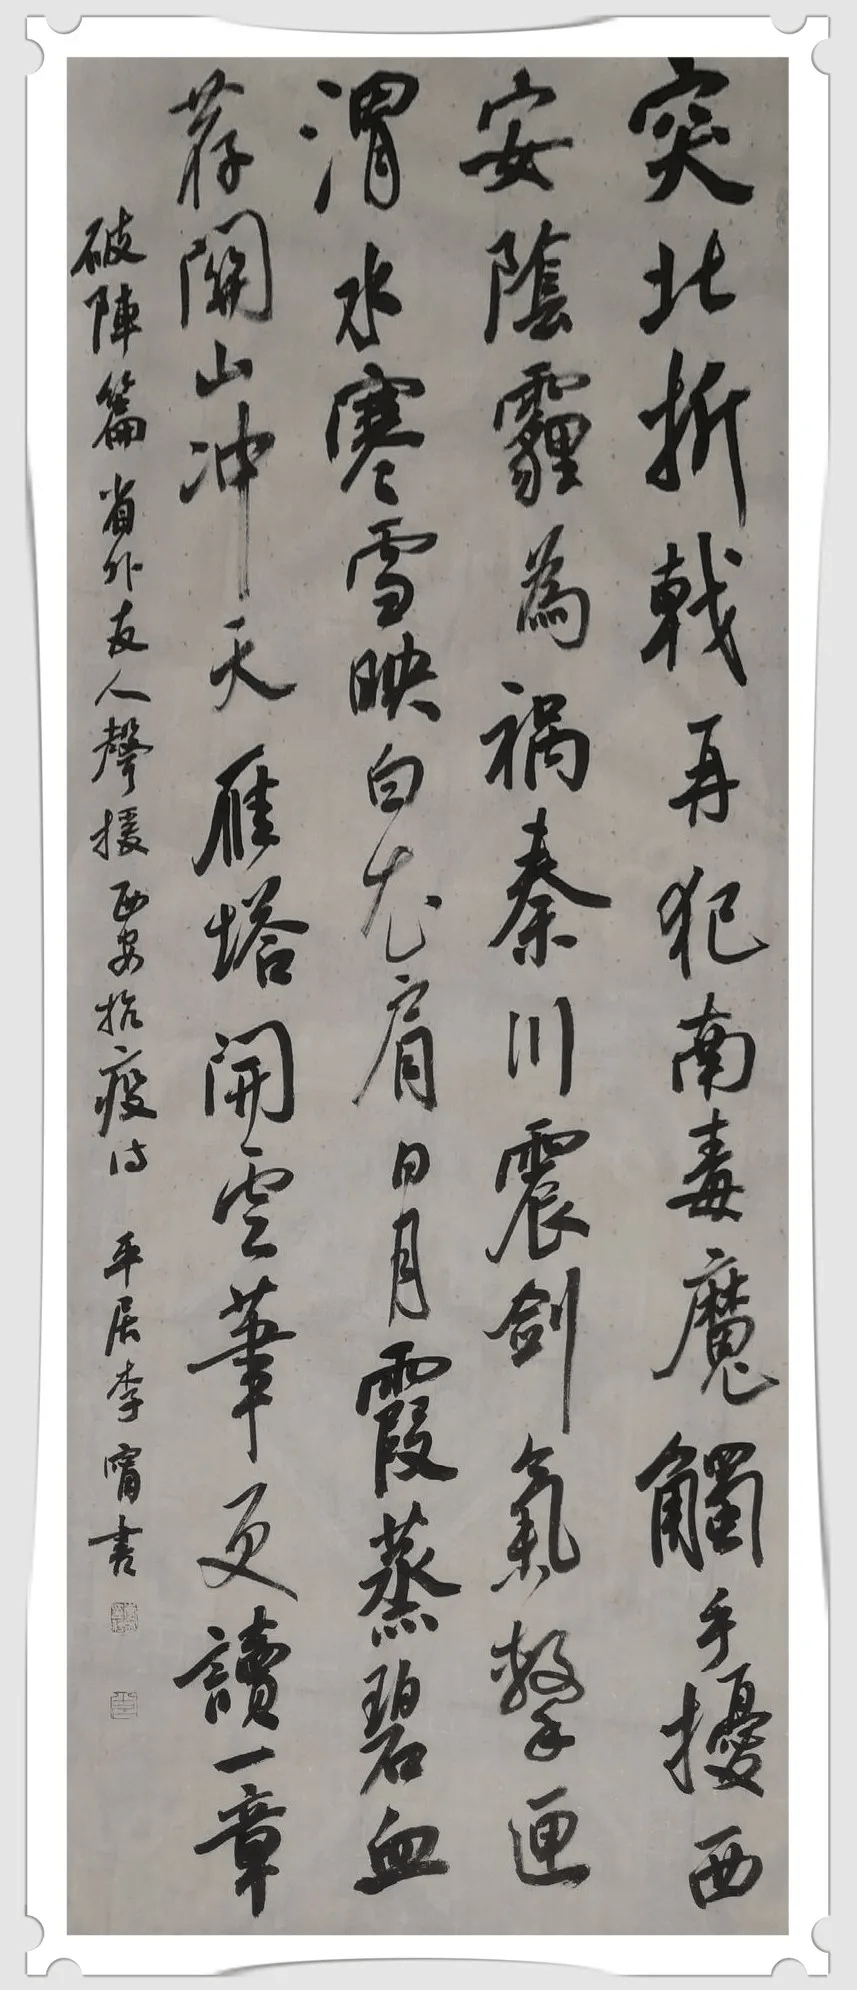 突北折戟再犯南毒魔觸手擾西
安陰霾為祸秦川震劍氣擊匣
渭水寒雪映白衣肩日月霞蒸碧血
荐關山冲天雁塔開雲筆更讀一章
破陣篇省外友人聲援西安抗疫诗 平居李甯書